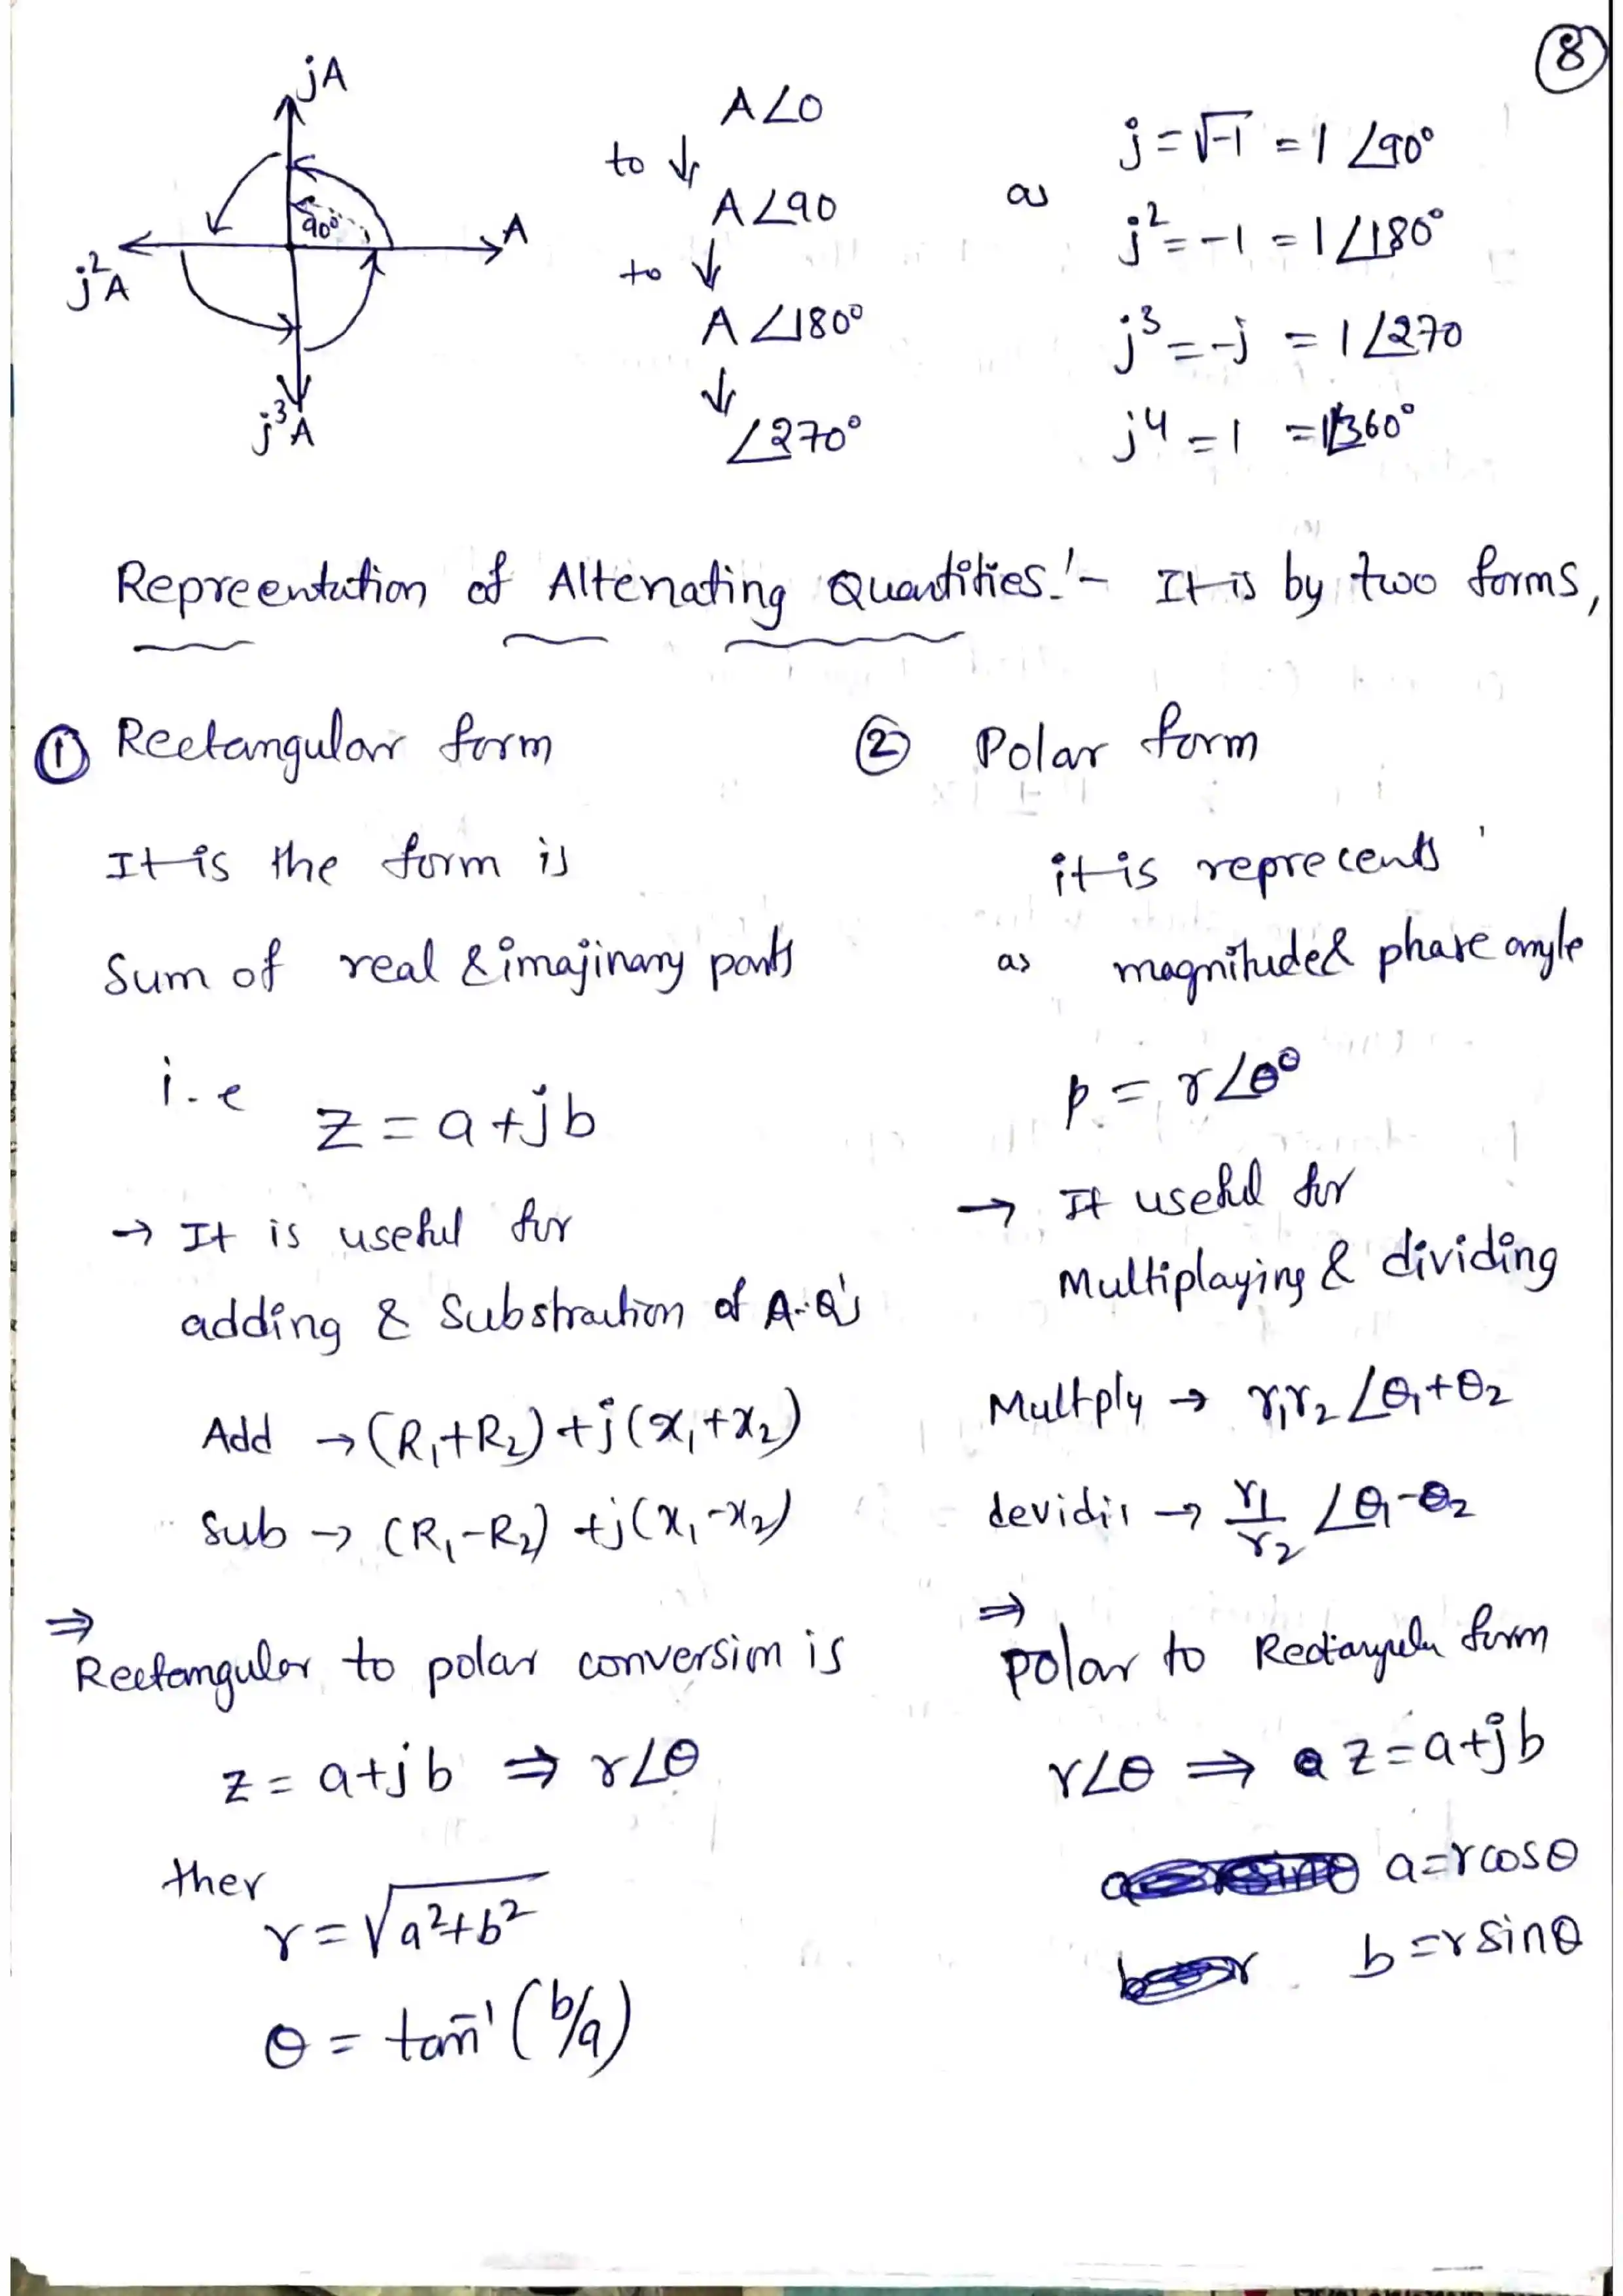 8
jA
90°
A
j²A
j³A
A∠0
to ↓
A∠90
to ↓
A∠180°
↓
∠270°
as
j = √-1 = 1 ∠90°
j² = -1 = 1∠180°
j³ = -j = 1∠270
j⁴ = 1 = 1∠360°
Repreentation of Altenating Quantities:- It is by two forms,
① Rectangular form
It is the form is
Sum of real & imajinary parts
i.e z = a + jb
→ It is useful for
adding & Substraction of A.Q's
Add → (R₁+R₂) + j(x₁+x₂)
Sub → (R₁-R₂) + j(x₁-x₂)
⇒
Rectangular to polar conversion is
z = a+jb ⇒ r∠θ
ther
r = √a²+b²
θ = tan⁻¹ (b/a)
② Polar form
it is reprecents
as magnitude & phase angle
p = r∠θ°
→ It useful for
Multiplaying & dividing
Multply → r₁r₂ ∠θ₁+θ₂
devidi → r₁/r₂ ∠θ₁-θ₂
⇒
Polar to Rectangular form
r∠θ ⇒ z = a+jb
a = r cosθ
b = r sinθ